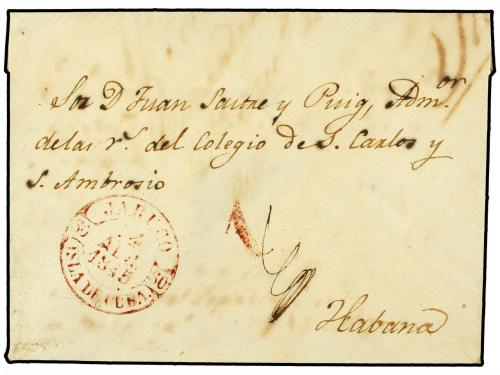 Sor D Juan Sastre y Puig, Admor.
de las rs. del Colegio de S. Carlos y
S. Ambrosio
JARUCO
ISLA DE CUBA
Habana